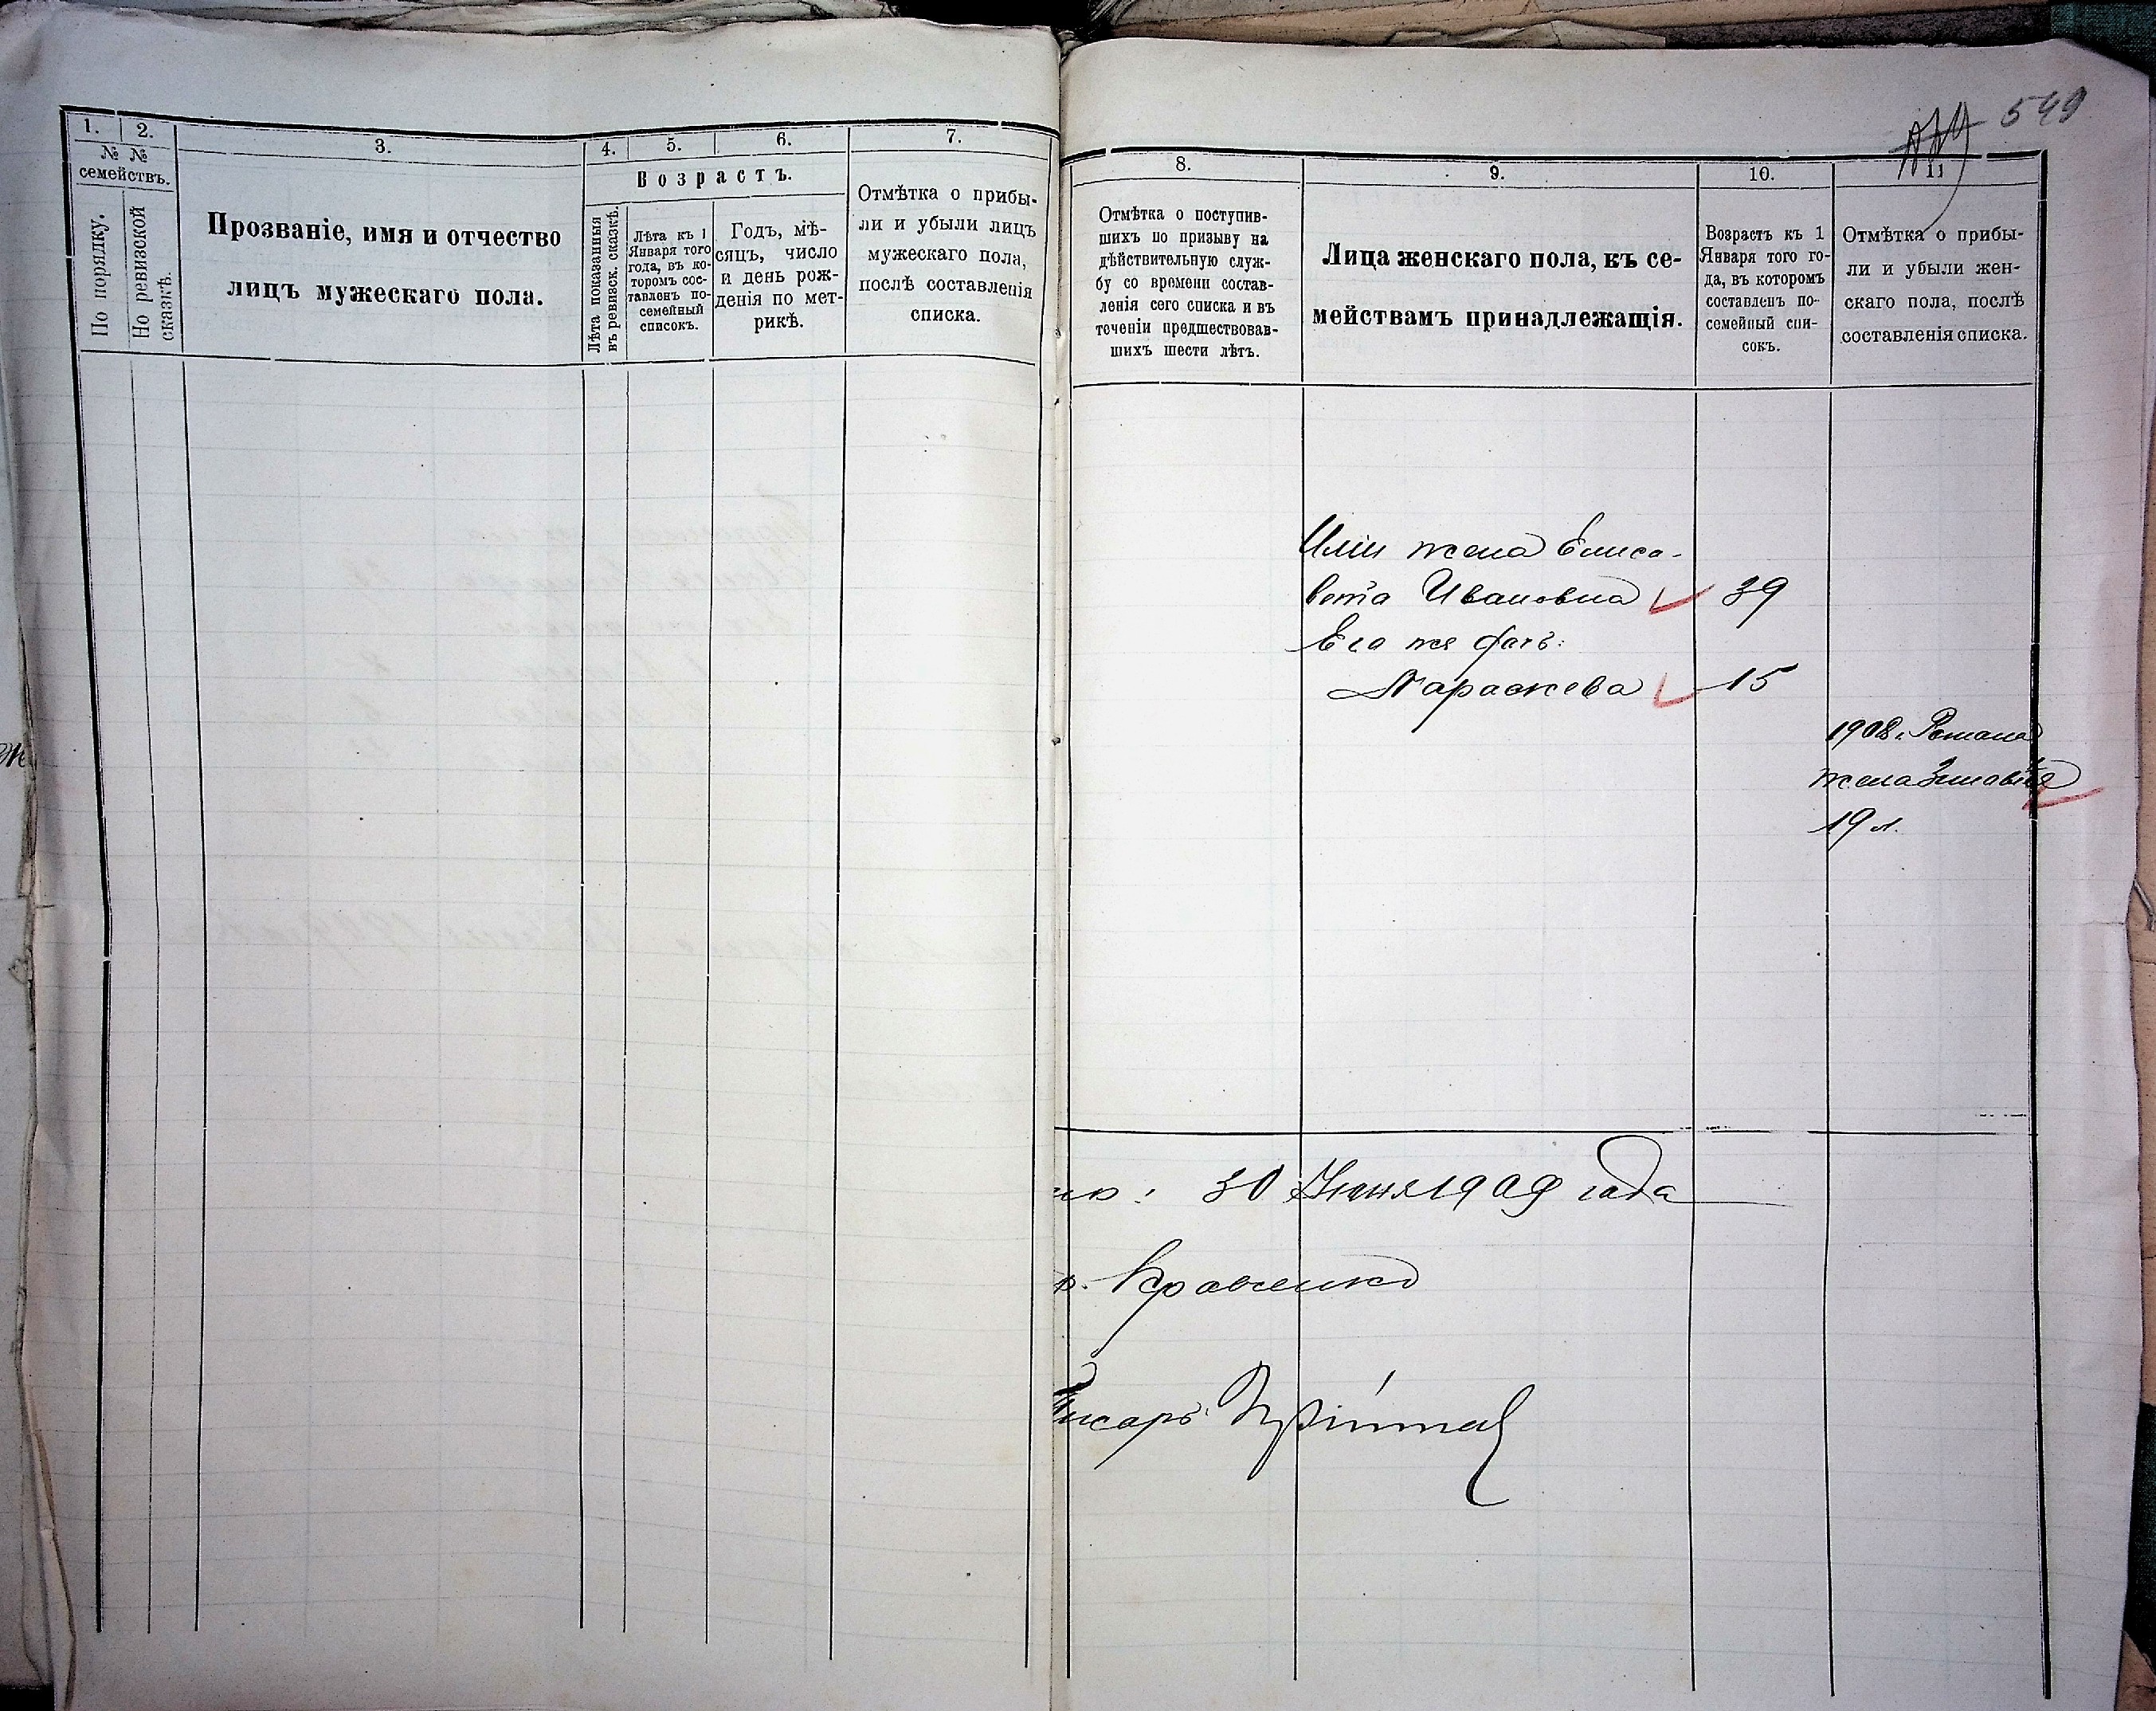 1. 2. 3. 4. 5. 6. 7.
№ №
семействъ.
По порядку.
По ревизской
сказкѣ.
Прозваніе, имя и отчество
лицъ мужескаго пола.
Возрастъ.
Лѣта показанныя
въ ревизск. сказкѣ.
Лѣта къ 1
Января того
года, въ ко-
торомъ сос-
тавленъ по-
семейный
списокъ.
Годъ, мѣ-
сяцъ, число
и день рож-
денія по мет-
рикѣ.
Отмѣтка о прибы-
ли и убыли лицъ
мужескаго пола,
послѣ составленія
списка.
549
8. 9. 10. 11
Отмѣтка о поступив-
шихъ по призыву на
дѣйствительную служ-
бу со времени состав-
ленія сего списка и въ
теченіи предшествовав-
шихъ шести лѣтъ.
Лица женскаго пола, къ се-
мействамъ принадлежащія.
Возрастъ къ 1
Января того го-
да, въ которомъ
составленъ по-
семейный спи-
сокъ.
Отмѣтка о прибы-
ли и убыли жен-
скаго пола, послѣ
составленія списка.
Иліи жена Елиса-
вета Ивановна 39
Его же дочь:
Параскева 15
1908 г. Романа
жена Зиновія
19 л.
30 Іюня 1909 года
Кравченко
Писарь